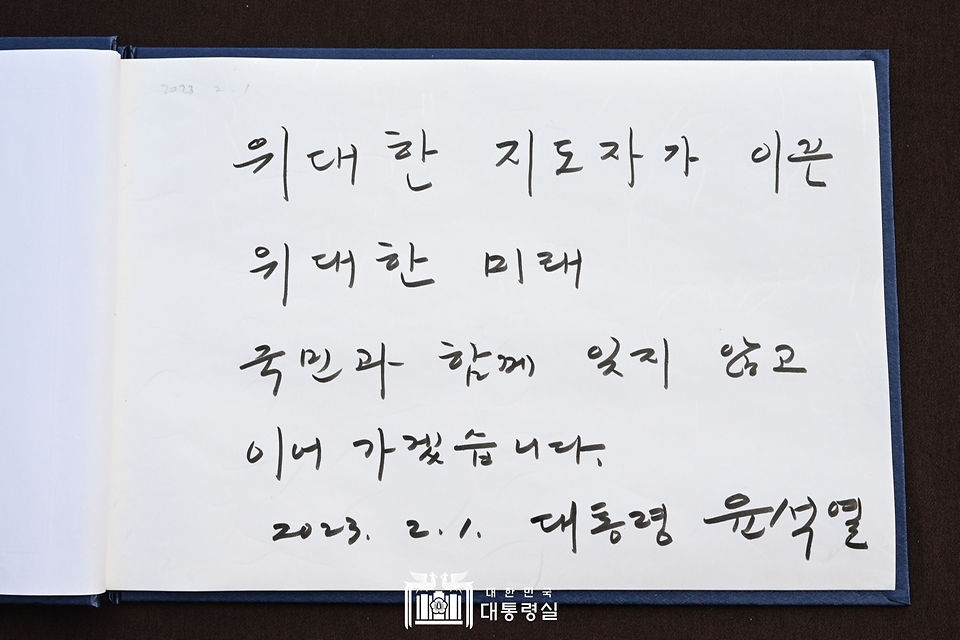 2023 2. 1
위대한 지도자가 이끈
위대한 미래
국민과 함께 잊지 않고
이어 가겠습니다.
2023. 2. 1. 대통령 윤석열
대한민국
대통령실